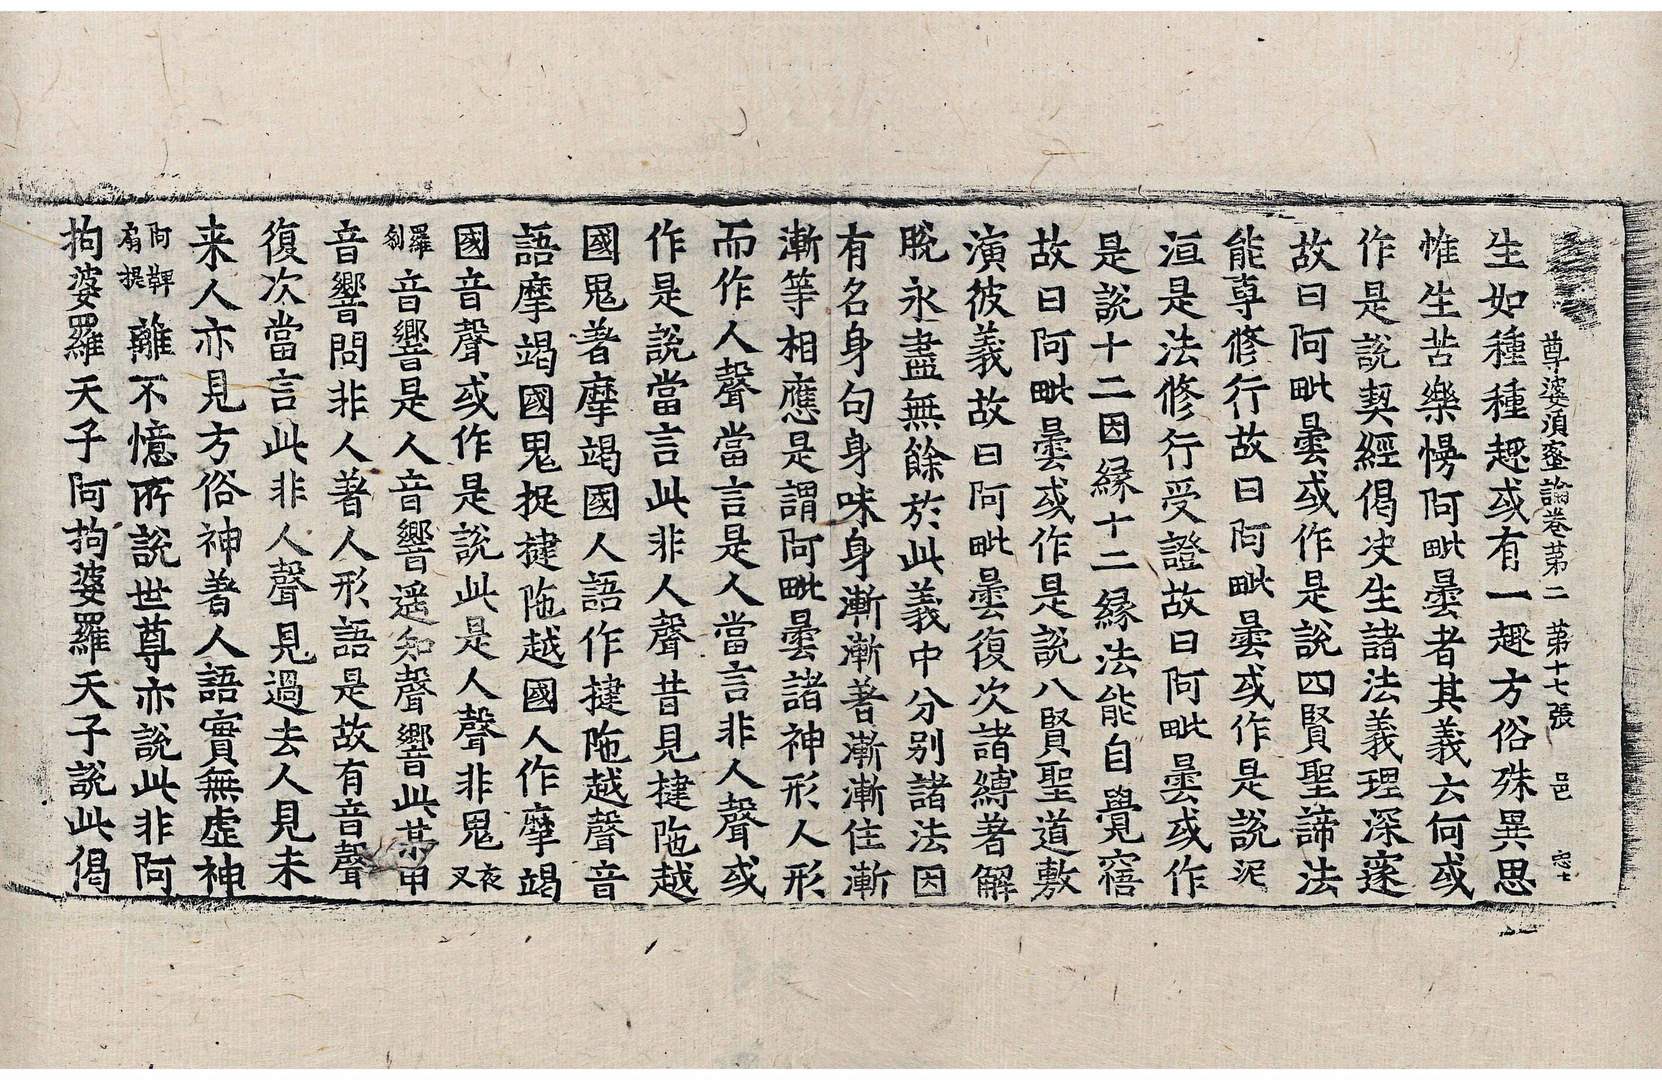 尊婆須蜜論卷第二 第十七張 邑
生如種種趣或有一趣方俗殊異思
惟生苦樂慢阿毗曇者其義云何或
作是說契經偈決生諸法義理深邃
故曰阿毗曇或作是說四賢聖諦法
能尊修行故曰阿毗曇或作是說泥
洹是法修行受證故曰阿毗曇或作
是說十二因緣十二緣法能自覺寤
故曰阿毗曇或作是說八賢聖道敷
演彼義故曰阿毗曇復次諸縛著解
脫永盡無餘於此義中分別諸法因
有名身句身味身漸漸著漸漸住漸
漸等相應是謂阿毗曇諸神形人形
而作人聲當言是人當言非人聲或
作是說當言此非人聲昔見揵陁越
國鬼著摩竭國人語作揵陁越聲音
語摩竭國鬼捉揵陁越國人作摩竭
國音聲或作是說此是人聲非鬼夜叉
羅剎音響是人音響遥知聲響此某甲
音響問非人著人形語是故有音聲
復次當言此非人聲見過去人見未
来人亦見方俗神著人語實無虛神
阿鞞扇提離不憶所說世尊亦說此非阿
拘婆羅天子阿拘婆羅天子說此偈